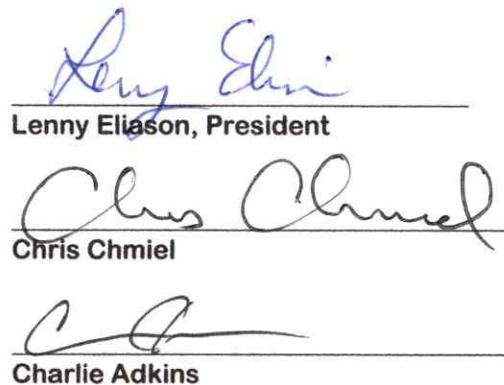 Lenny Eliason
Lenny Eliason, President
Chris Chmiel
Chris Chmiel
Charlie Adkins